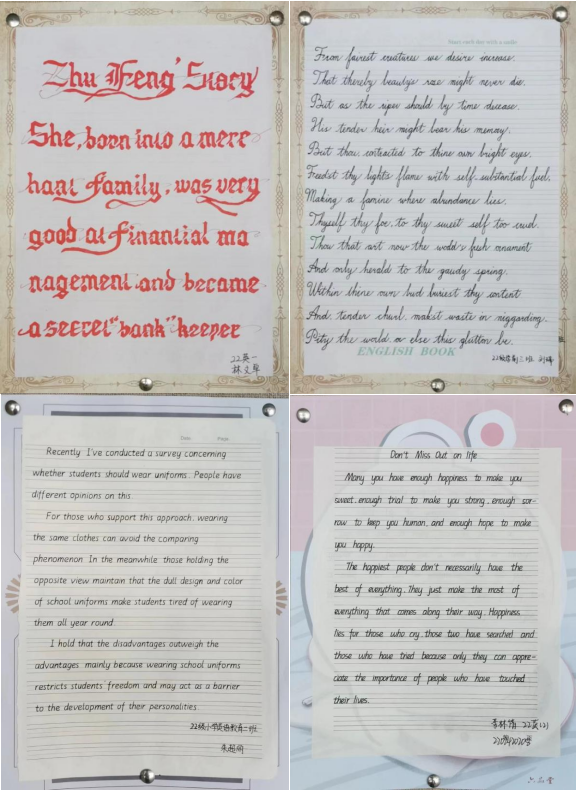 Zhu Feng' Suory
She, born into a mere
hant family, was very
good at financial ma
nagement and became
a secret "bank" keeper
22英一
林文草
From fairest creatures we desire increase.
That thereby beautys rose might never die.
But as the riper should by time decease.
His tender heir might bear his memory.
But thou, contracted to thine own bright eyes.
Feedst thy lights flame with self-substantial fuel.
Making a famine where abundance lies.
Thyself thy foe, to thy sweet self too cruel.
Thou that art now the world's fresh ornament
And only herald to the gaudy spring.
Within thine own bud buriest thy content
And, tender churl, makst waste in niggarding.
Pity the world, or else this glutton be.
ENGLISH BOOK
Date Page
Recently I've conducted a survey concerning
whether students should wear uniforms. People have
different opinions on this.
For those who support this approach, wearing
the same clothes can avoid the comparing
phenomenon. In the meanwhile those holding the
opposite view maintain that the dull design and color
of school uniforms make students tired of wearing
them all year round.
I hold that the disadvantages outweigh the
advantages mainly because wearing school uniforms
restricts students' freedom and may act as a barrier
to the development of their personalities.
22级小学英语教育二班
Don't Miss Out on life
Many you have enough happiness to make you
sweet, enough trial to make you strong, enough sor-
row to keep you human, and enough hope to make
you happy.
The happiest people don't necessarily have the
best of everything. They just make the most of
everything that comes along their way. Happiness
lies for those who cry, those two have searched and
those who have tried because only they can appre-
ciate the importance of people who have touched
their lives.
22英(2)